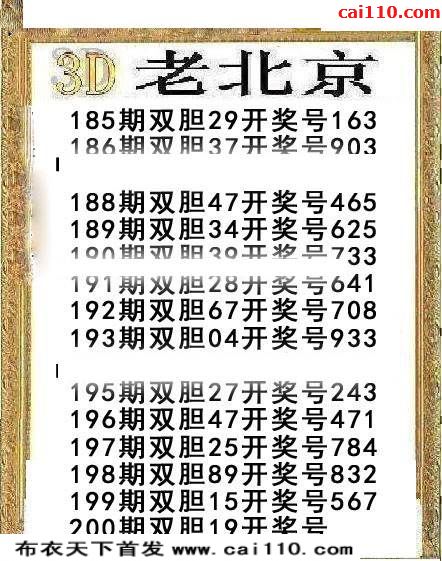 cai110.com
3D 老北京
185期双胆29开奖号163
186期双胆37开奖号903
188期双胆47开奖号465
189期双胆34开奖号625
190期双胆39开奖号733
191期双胆28开奖号641
192期双胆67开奖号708
193期双胆04开奖号933
195期双胆27开奖号243
196期双胆47开奖号471
197期双胆25开奖号784
198期双胆89开奖号832
199期双胆15开奖号567
200期双胆19开奖号
布衣天下首发 www.cai110.com